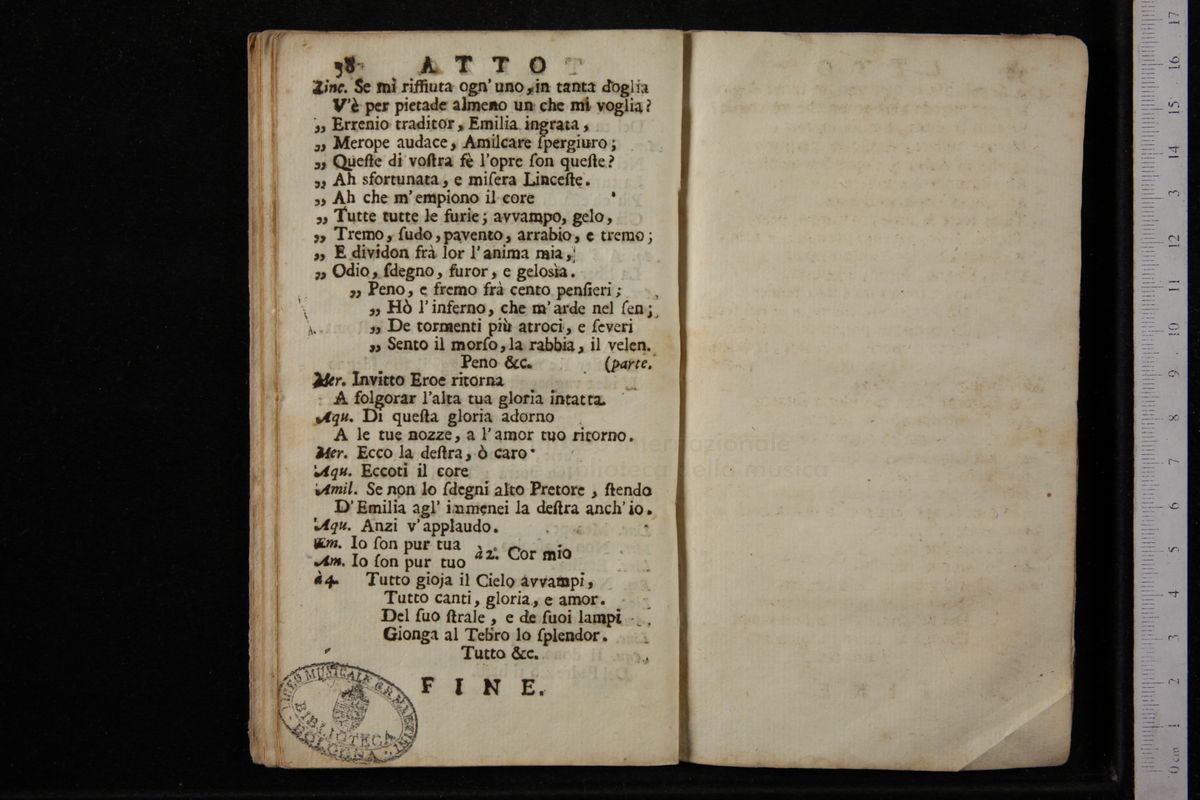 38 ATTO
Linc. Se mi riffiuta ogn' uno, in tanta doglia
V'è per pietade almeno un che mi voglia?
„ Errenio traditor, Emilia ingrata,
„ Merope audace, Amilcare ſpergiuro;
„ Queſte di voſtra fè l'opre ſon queſte?
„ Ah sfortunata, e miſera Linceſte.
„ Ah che m'empiono il core
„ Tutte tutte le furie; avvampo, gelo,
„ Tremo, ſudo, pavento, arrabio, e tremo;
„ E dividon frà lor l'anima mia,
„ Odio, ſdegno, furor, e gelosìa.
„ Peno, e fremo frà cento penſieri;
„ Hò l'inferno, che m'arde nel ſen;
„ De tormenti più atroci, e ſeveri
„ Sento il morſo, la rabbia, il velen.
Peno &c. (parte.
Mer. Invitto Eroe ritorna
A folgorar l'alta tua gloria intatta.
Aqu. Di queſta gloria adorno
A le tue nozze, a l'amor tuo ritorno.
Mer. Ecco la deſtra, ò caro
Aqu. Eccoti il core
Amil. Se non lo ſdegni alto Pretore, ſtendo
D'Emilia agl' inmenei la deſtra anch'io.
Aqu. Anzi v'applaudo.
Em. Io ſon pur tua
à 2. Cor mio
Am. Io ſon pur tuo
à 4. Tutto gioja il Cielo avvampi,
Tutto canti, gloria, e amor.
Del ſuo ſtrale, e de ſuoi lampi
Gionga al Tebro lo ſplendor.
Tutto &c.
FINE.
LICEO MUSICALE G.B. MARTINI
BIBLIOTECA
BOLOGNA
internazionale
biblioteca della musica
0 cm 1 2 3 4 5 6 7 8 9 10 11 12 13 14 15 16 17